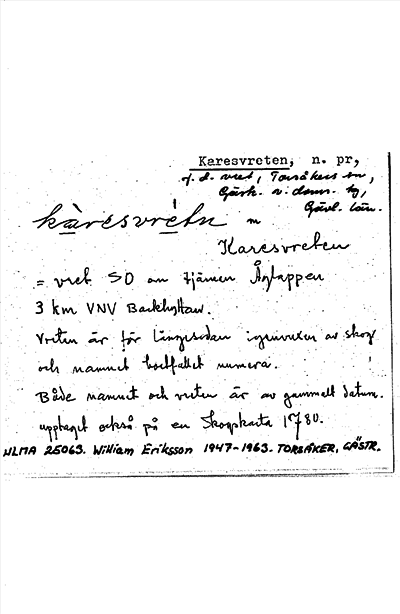 Karesvreten, n. pr,
f. d. vret, Torsåkers sn,
Gästr. v. doms. hg,
Gävl. län.
kàresvrétn m
Karesvreten
= vret SO om tjärnen Åglappen
3 km VNV Backhyttan.
Vreten är för längesedan igenvuxen av skog
och namnet bortfallet numera.
Både namnet och vreten är av gammalt datum.
upptaget också på en Skogskarta 1780.
ULMA 25063. William Eriksson 1947-1963. TORSÅKER, GÄSTR.